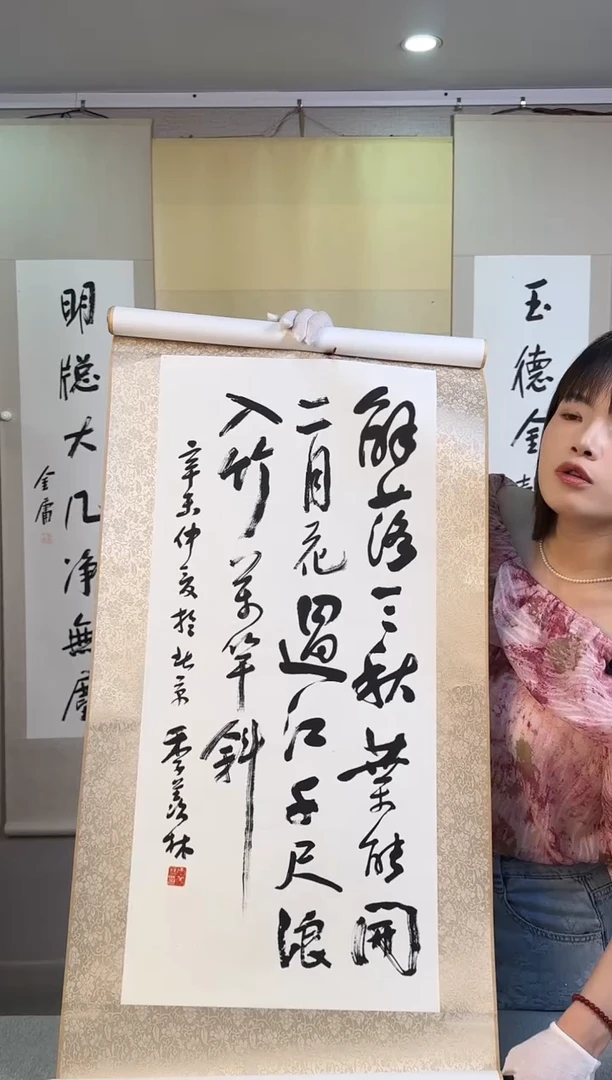 解落三秋葉能開
二月花過江千尺浪
入竹萬竿斜
辛未仲夏於北京 季羨林
玉德金
明牕大几净無塵
金庸